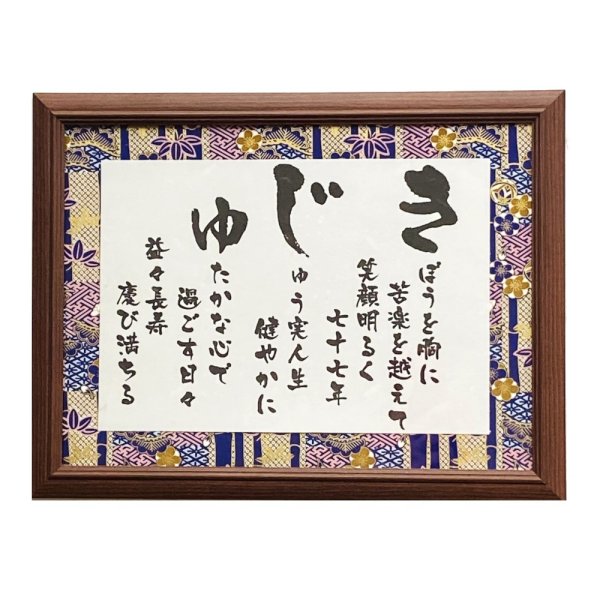 きぼうを胸に
苦楽を越えて
笑顔明るく
七十七年
じゅう実人生
健やかに
ゆたかな心で
過ごす日々
益々長寿
慶び満ちる